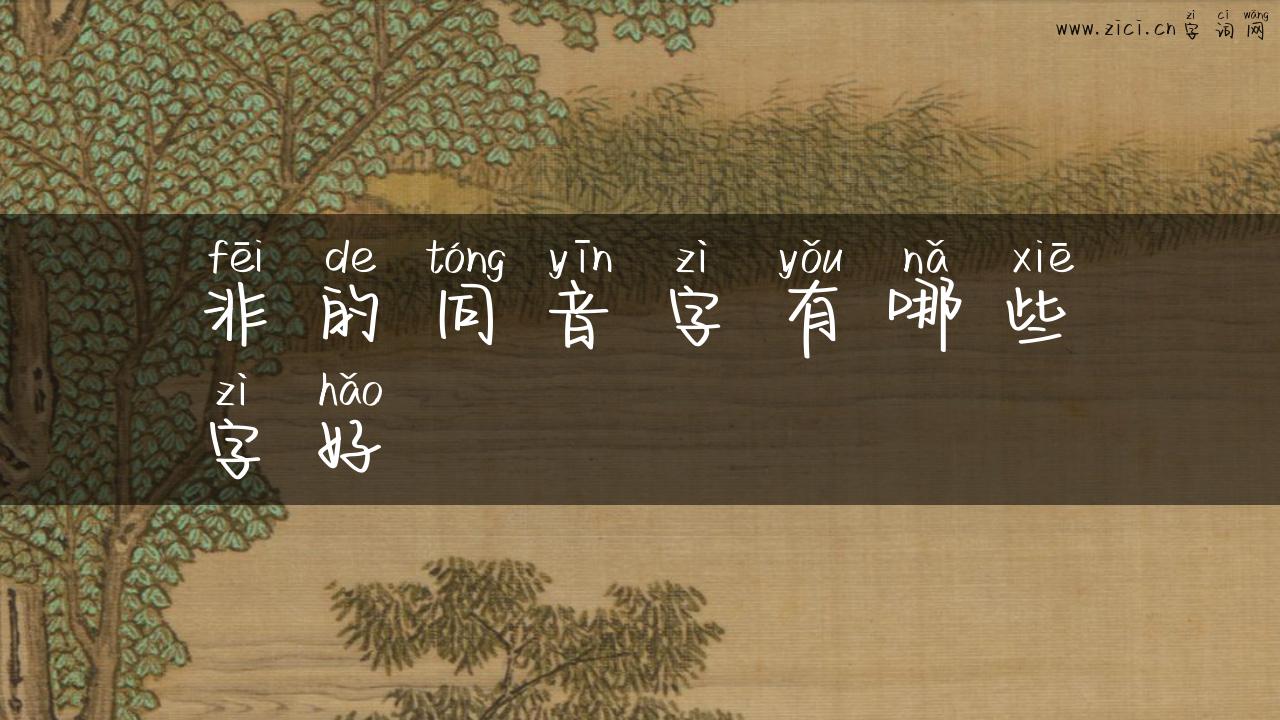 zì cí wǎng
www.zici.cn 字词网
fēi de tóng yīn zì yǒu nǎ xiē
非的同音字有哪些
zì hǎo
字好